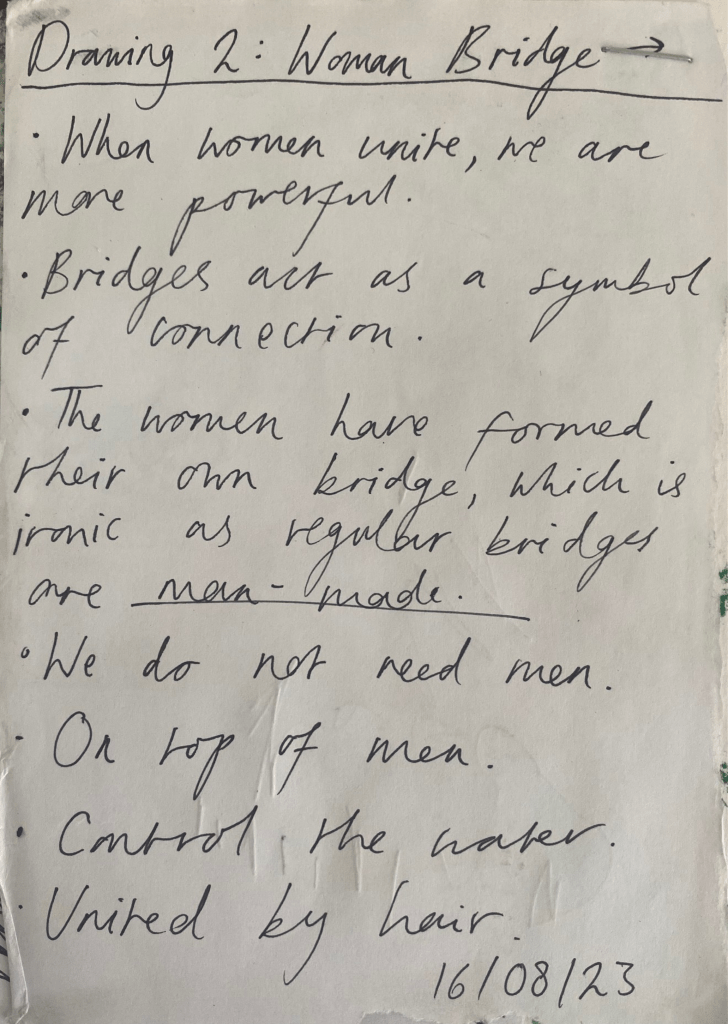 Drawing 2: Woman Bridge →
· When women unite, we are
more powerful.
· Bridges act as a symbol
of connection.
· The women have formed
their own bridge, which is
ironic as regular bridges
are man-made.
· We do not need men.
- On top of men.
· Control the water.
· United by hair.
16/08/23